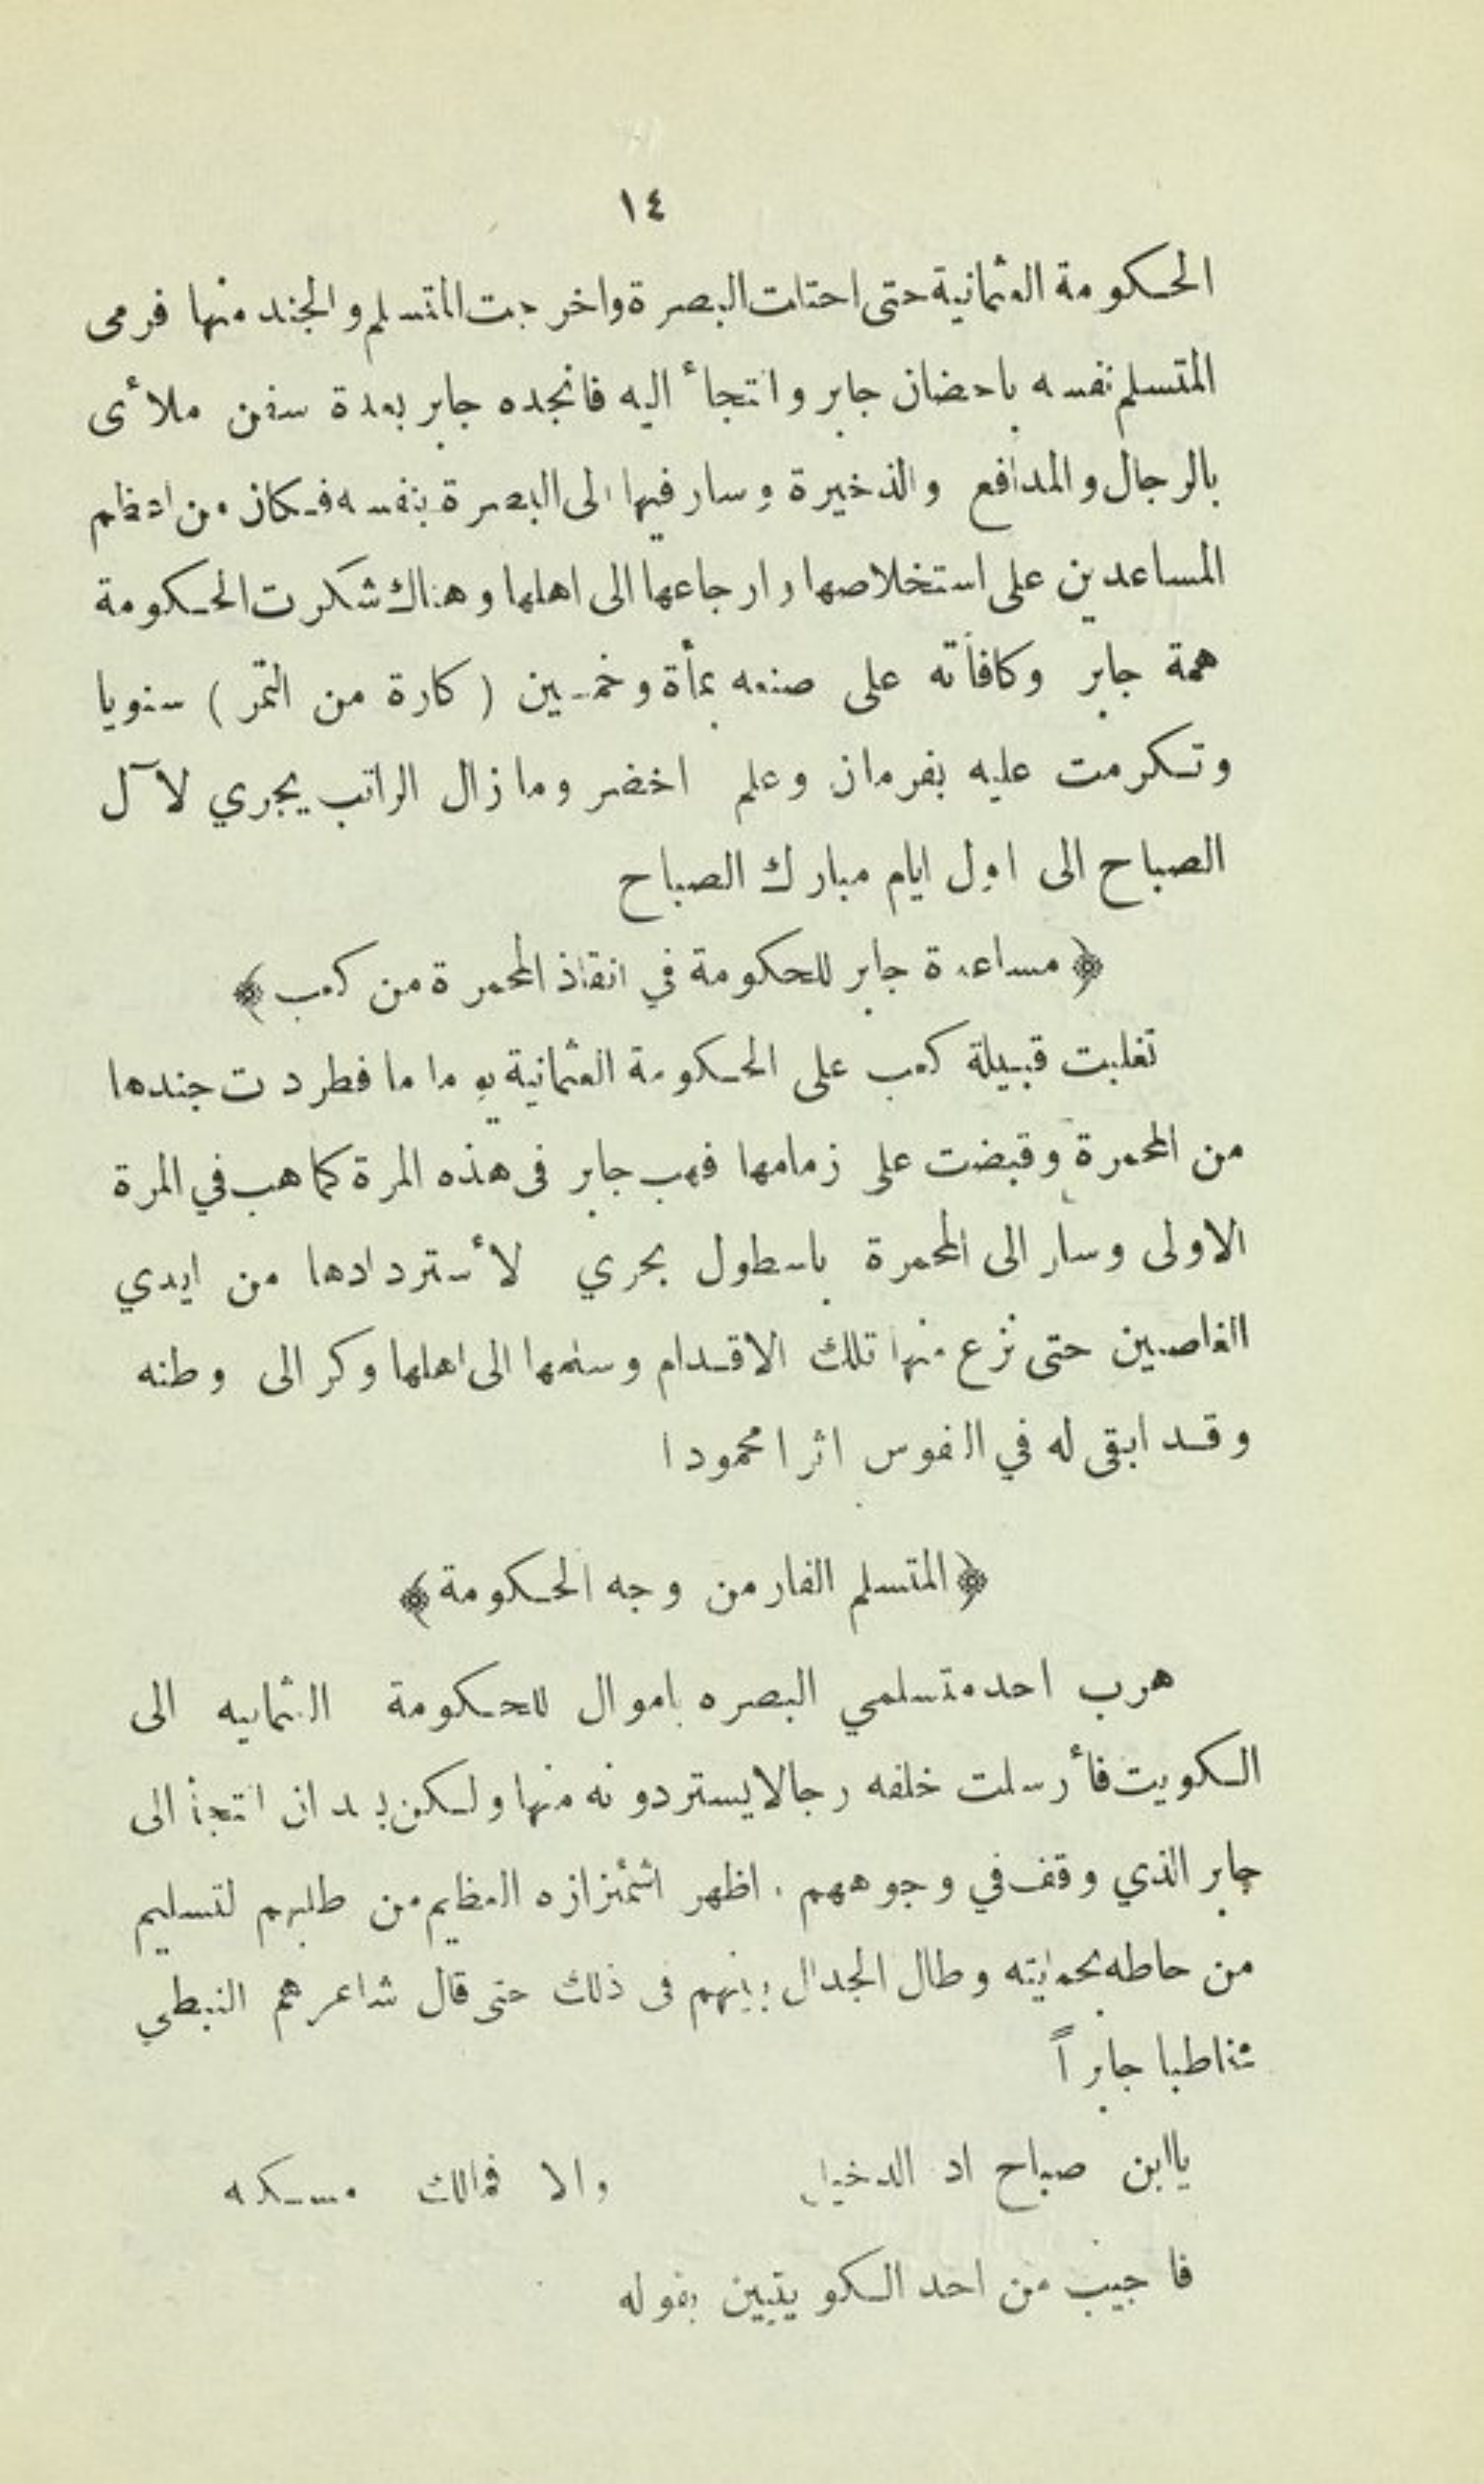 ١٤
الحكومة العثمانية حتى احتلت البصرة واخرجت المتسلم والجند منها فرمى
المتسلم نفسه باحضان جابر وانتجأ اليه فانجده جابر بعدة سفن ملأى
بالرجال والمدافع والذخيرة وسار فيها الى البصرة بنفسه فكان من اعظم
المساعدين على استخلاصها وارجاعها الى اهلها وهناك شكرت الحكومة
همة جابر وكافأته على صنعه بمأة وخمسين (كارة من التمر) سنويا
وتكرمت عليه بفرمان وعلم اخضر وما زال الراتب يجري لآل
الصباح الى اول ايام مبارك الصباح
﴿مساعدة جابر للحكومة في انقاذ المحمرة من كعب﴾
تغلبت قبيلة كعب على الحكومة العثمانية يوما ما فطردت جندها
من المحمرة وقبضت على زمامها فهب جابر فى هذه المرة كما هب في المرة
الاولى وسار الى المحمرة باسطول بحري لأستردادها من ايدي
الغاصبين حتى نزع منها تلك الاقدام وسلمها الى اهلها وكر الى وطنه
وقد ابقى له في النفوس اثرا محمودا
﴿المتسلم الفار من وجه الحكومة﴾
هرب احد متسلمي البصره باموال للحكومة العثمانيه الى
الكويت فأرسلت خلفه رجالا يستردونه منها ولكن بعد ان التجئ الى
جابر الذي وقف في وجوههم . اظهر اشمئزازه العظيم من طلبهم لتسليم
من حاطه بحمايته وطال الجدال بينهم فى ذلك حتى قال شاعرهم النبطي
مخاطبا جابراً
يا ابن صباح اد الدخيل والا فمالك مسكه
فاجيب من احد الكويتيين بقوله